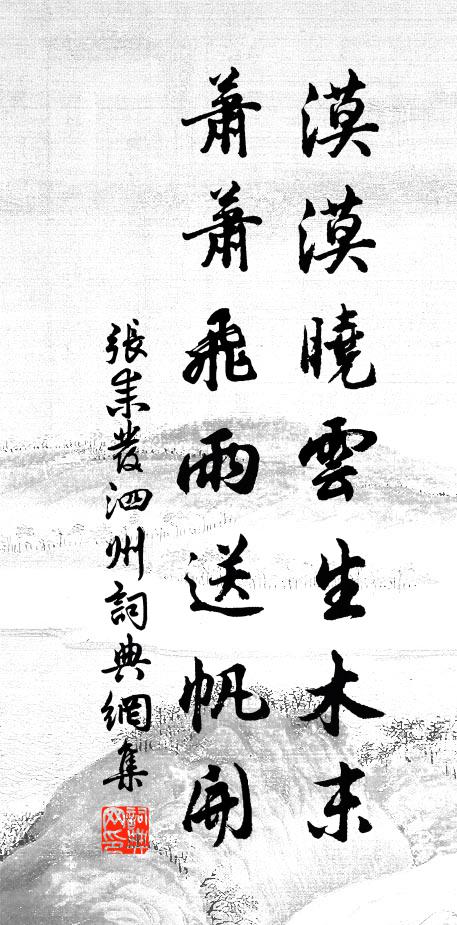 漠漠曉雲生木末
蕭蕭飛雨送帆開
張耒發泗州詞典網集